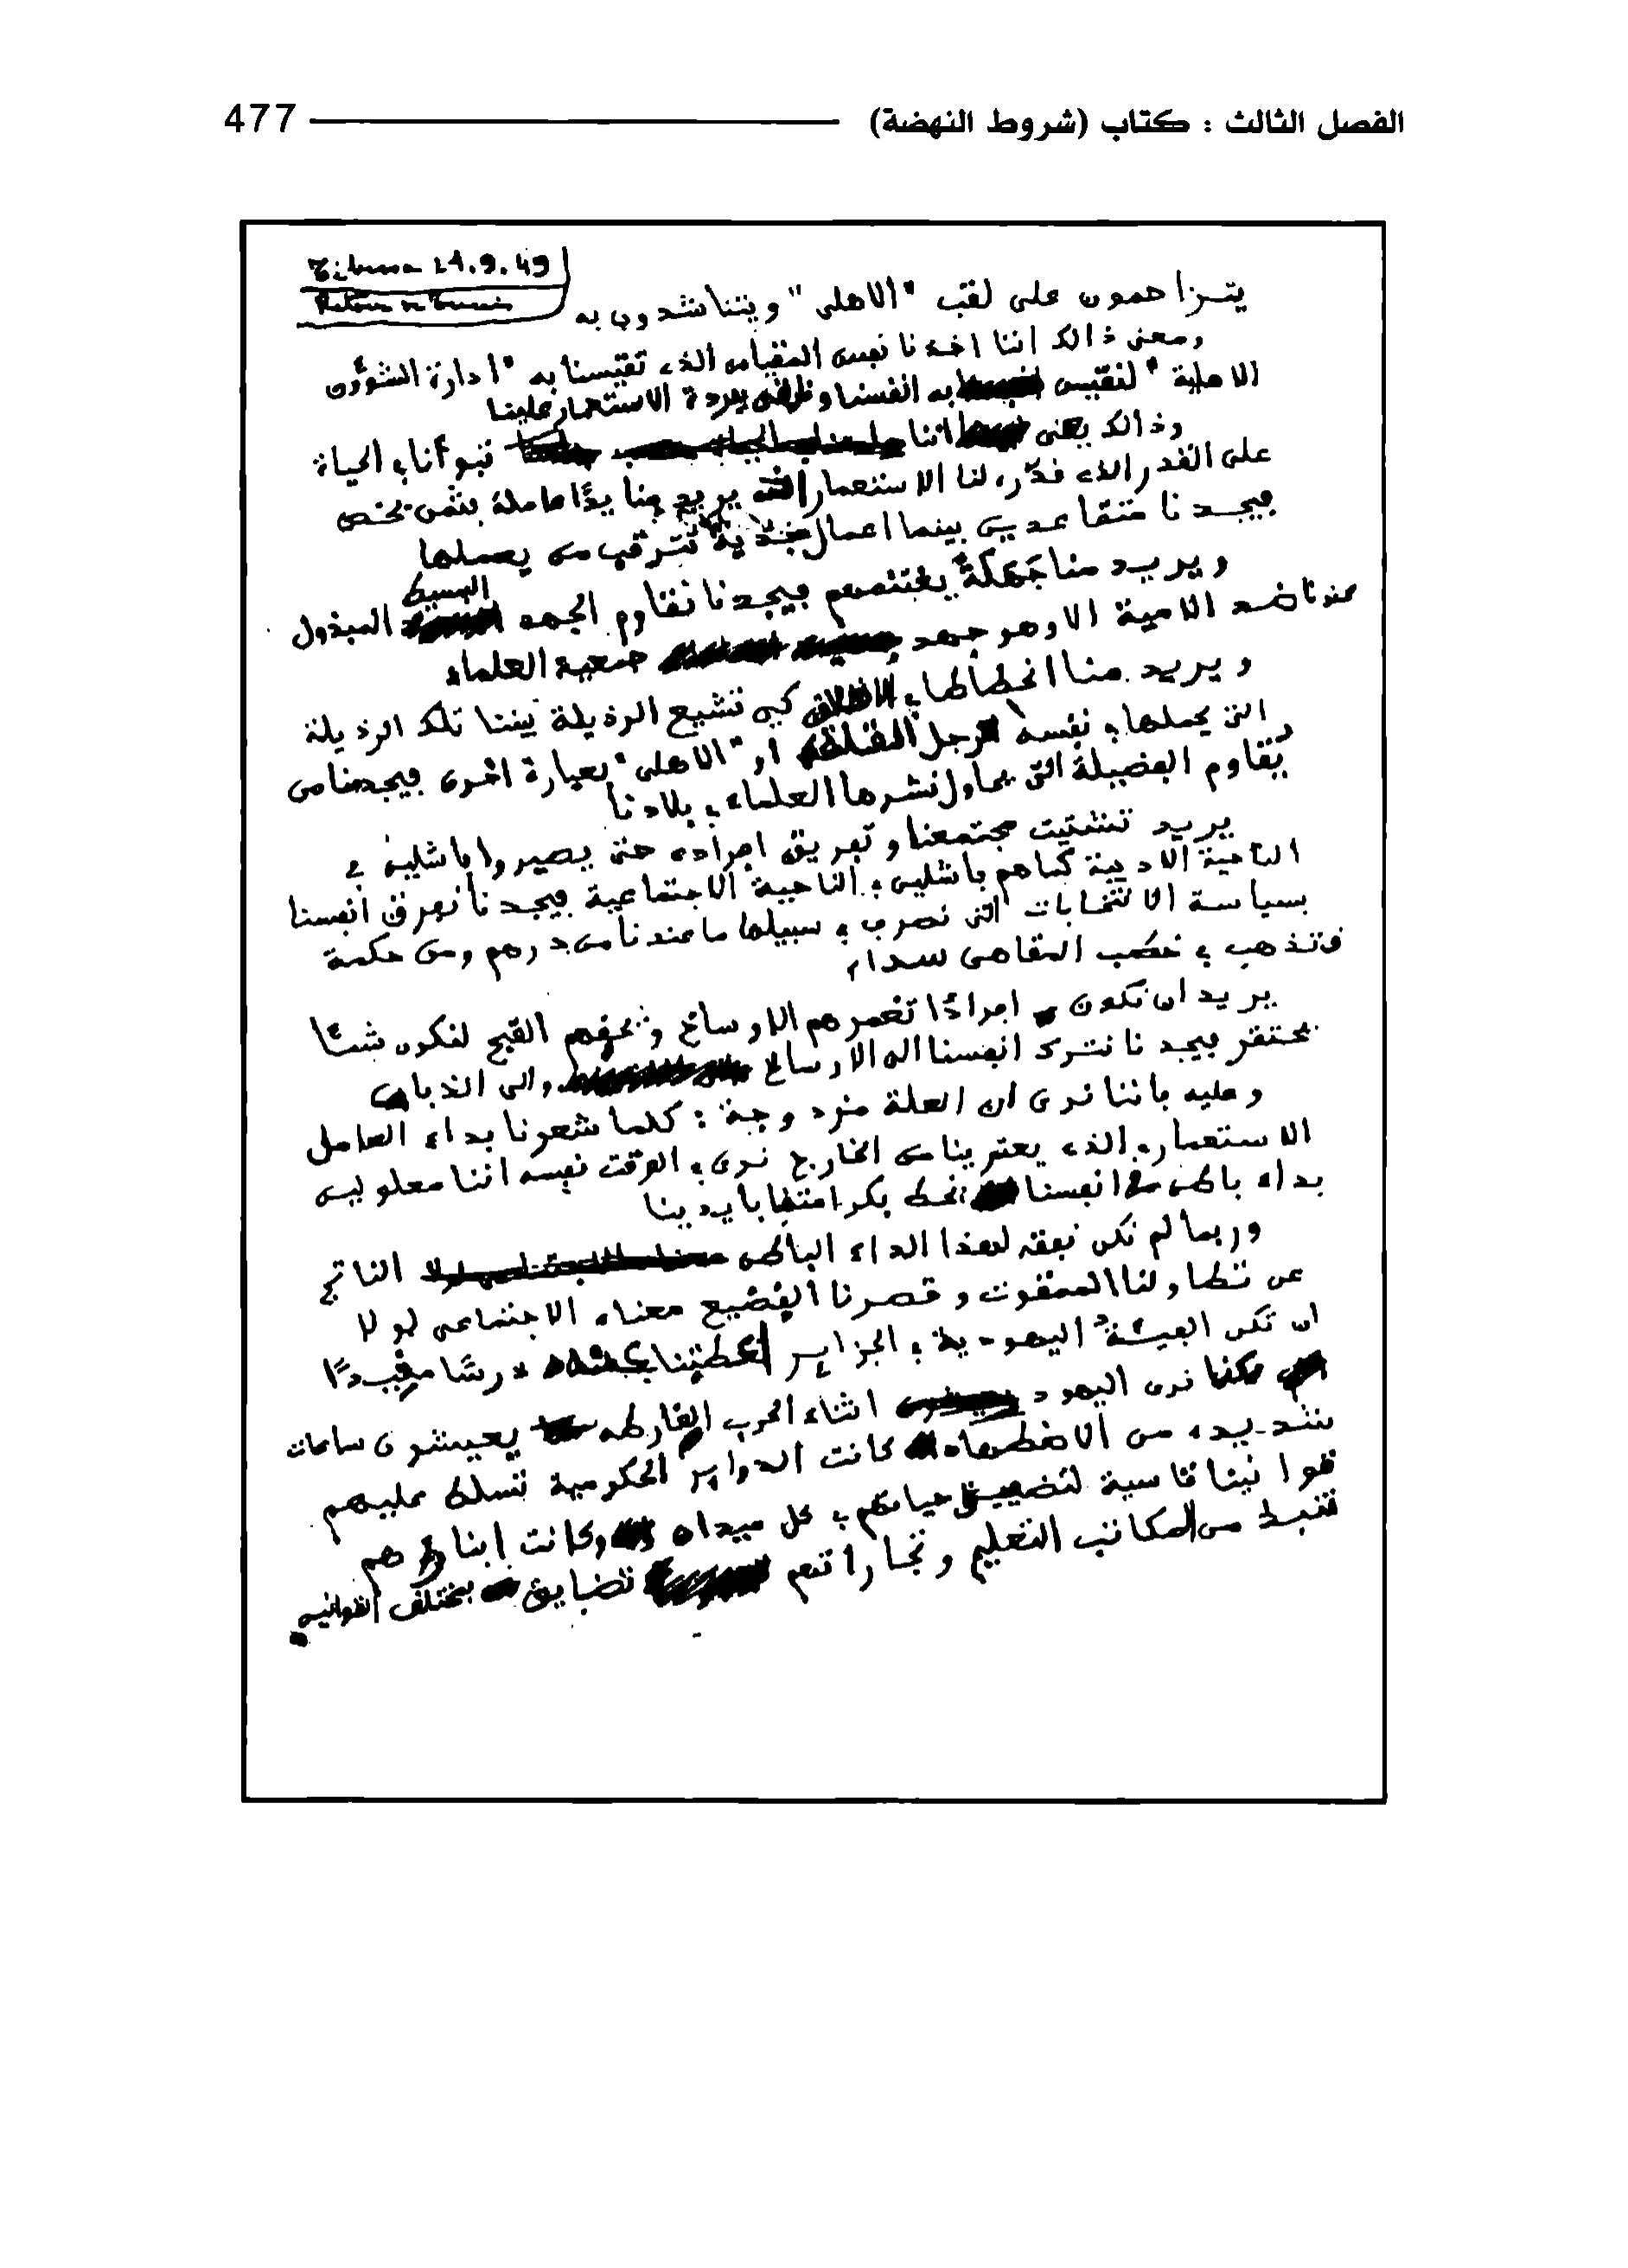 الفصل الثالث : كتاب (شروط النهضة) 477
21.9.49
يتزاحمون على لقب "الاهلى" ويتناشدون به
ومعنى ذالك اننا اخذنا نفس المقياس الذى تقيسنا به "ادارة الشؤون
الاهلية" لنقيس به انفسنا الاستعمار علينا
وذالك يعنى اننا الحياة
على القدر الذى قدّره لنا الاستعمار يريد منا يدًا عاملة بثمن بخص
فيجدنا متقاعدين بينما اعمال تترقب من يعملها
ويريد منا جهلة يغتنمهم فيجدنا نقاوم الجهد البسيط المبذول
عندنا ضد الامية الا وهو جهد جمعية العلماء
ويريد منا انحطاطا فى الاخلاق كى تشيع الرذيلة بيننا تلك الرذيلة
التى يحملها فى نفسه رجل او "الاهلى" بعبارة اخرى فيجد منا من
يقاوم الفضيلة التى يحاول نشرها العلماء فى بلادنا
يريد تشتيت مجتمعنا وتفريق افراده حتى يصيروا فاشلين فى
الناحية الادبية كما هم فاشلين فى الناحية الاجتماعية فيجدنا نفرق انفسنا
بسياسة الانتخابات التى نصرف فى سبيلها ما عندنا من درهم ومن حكمة
فتذهب فى خطب المقاهى سداء
يريد ان نكون افرادًا تغمرهم الاوساخ القبح لنكون شيئًا
يحتقر فيجدنا نترك انفسنا الى الاوساخ والى الذباب
وعليه فاننا نرى ان العلة مزدوجة : كلما شعرنا بداء العامل
الاستعمارى الذى يعترينا من الخارج نرى فى الوقت نفسه اننا معلولين
بداء باطن فى انفسنا يحط بكرامتنا بايدينا
وربما لم نكن نفقه لهذا الداء الباطن الناتج
عن تطاولنا الممقوت وقصرنا الفضيع معناه الاجتماعى لو لا
ان تكن العيشة اليهودية فى الجزاير درسًا مفيدًا
نرى اليهود اثناء الحرب الفارطه يعيشون ساعات
شديدة من الاضطهاد كانت الدواير الحكومية تسلط عليهم
قوانينا قاسية لتضييق حياتهم فى كل ميدان وكانت ابناؤهم
تنبذ من المكاتب التعليم وتجاراتهم تضايق بمختلف القوانين